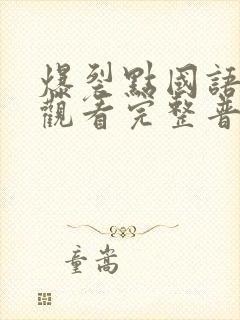 爆裂點國語
觀看完整普
童嵩